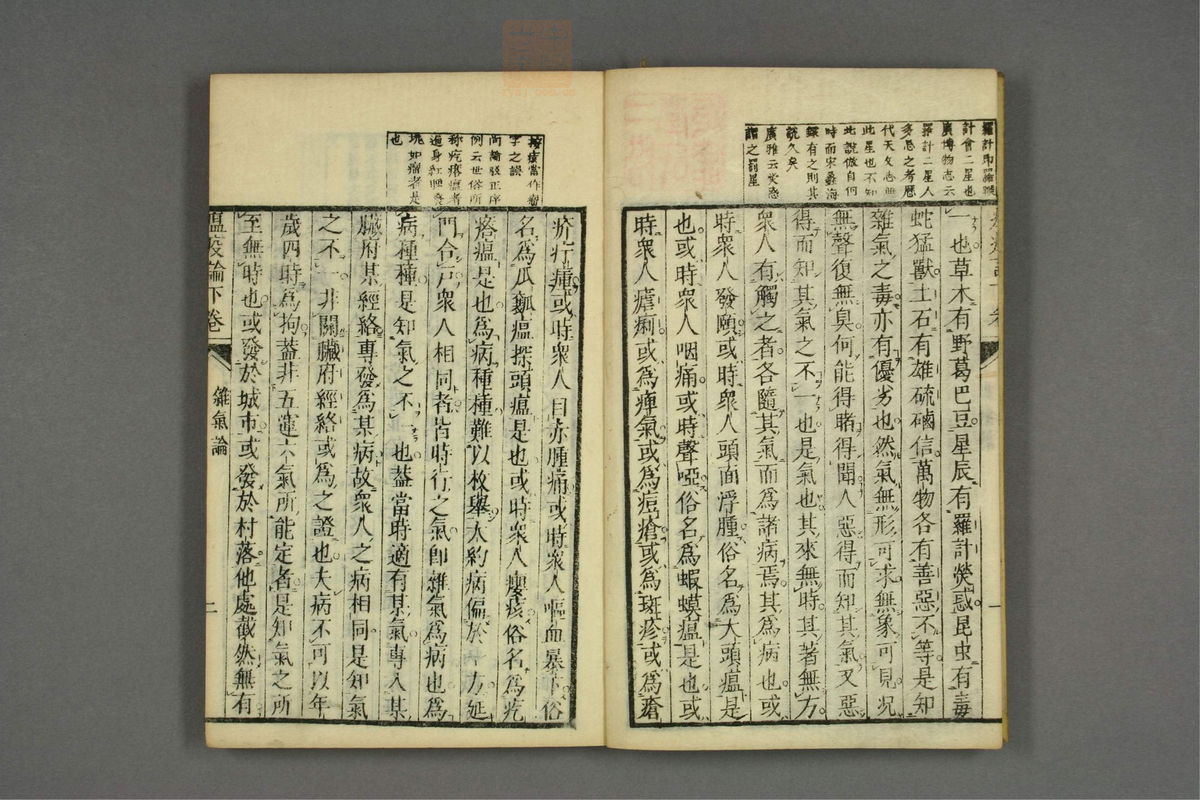 羅計即羅㬋
計會二星也
廣博物志云
羅計二星人
多忌之考歷
代天文志無
此星也不知
此說倣自何
時而宋蠡海
錄有之則其
說久矣
廣雅云熒惑
謂之罰星
一也草木有野葛巴豆星辰有羅計熒惑昆虫有毒
蛇猛獸土石有雄硫硇信萬物各有善惡不等是知
雜氣之毒亦有優劣也然氣無形可求無象可見況
無聲復無臭何能得睹得聞人惡得而知其氣又惡
得而知其氣之不一也是氣也其來無時其著無方
衆人有觸之者各隨其氣而為諸病焉其為病也或
時衆人發頤或時衆人頭面浮腫俗名為大頭瘟是
也或時衆人咽痛或時聲啞俗名為蝦蟆瘟是也或
時衆人瘧痢或為痺氣或為痘瘡或為斑疹或為瘡
按當作
字之誤
例云世俗所
称疙瘩瘟者
遍身紅腫發
塊如瘤者是
也
疥疔腫或時衆人目赤腫痛或時衆人嘔血暴下俗
名為瓜瓤瘟探頭瘟是也或時衆人癭痎俗名為疙
瘩瘟是也為病種種難以枚舉大約病偏於一方延
門合戶衆人相同者皆時行之氣即雜氣為病也為
病種種是知氣之不一也蓋當時適有某氣專入某
臟府某經絡專發為某病故衆人之病相同是知氣
之不一非關臟府經絡或為之證也夫病不可以年
歲四時為拘蓋非五運六氣所能定者是知氣之所
至無時也或發於城市或發於村落他處截然無有
瘟疫論下卷
雜氣論
二